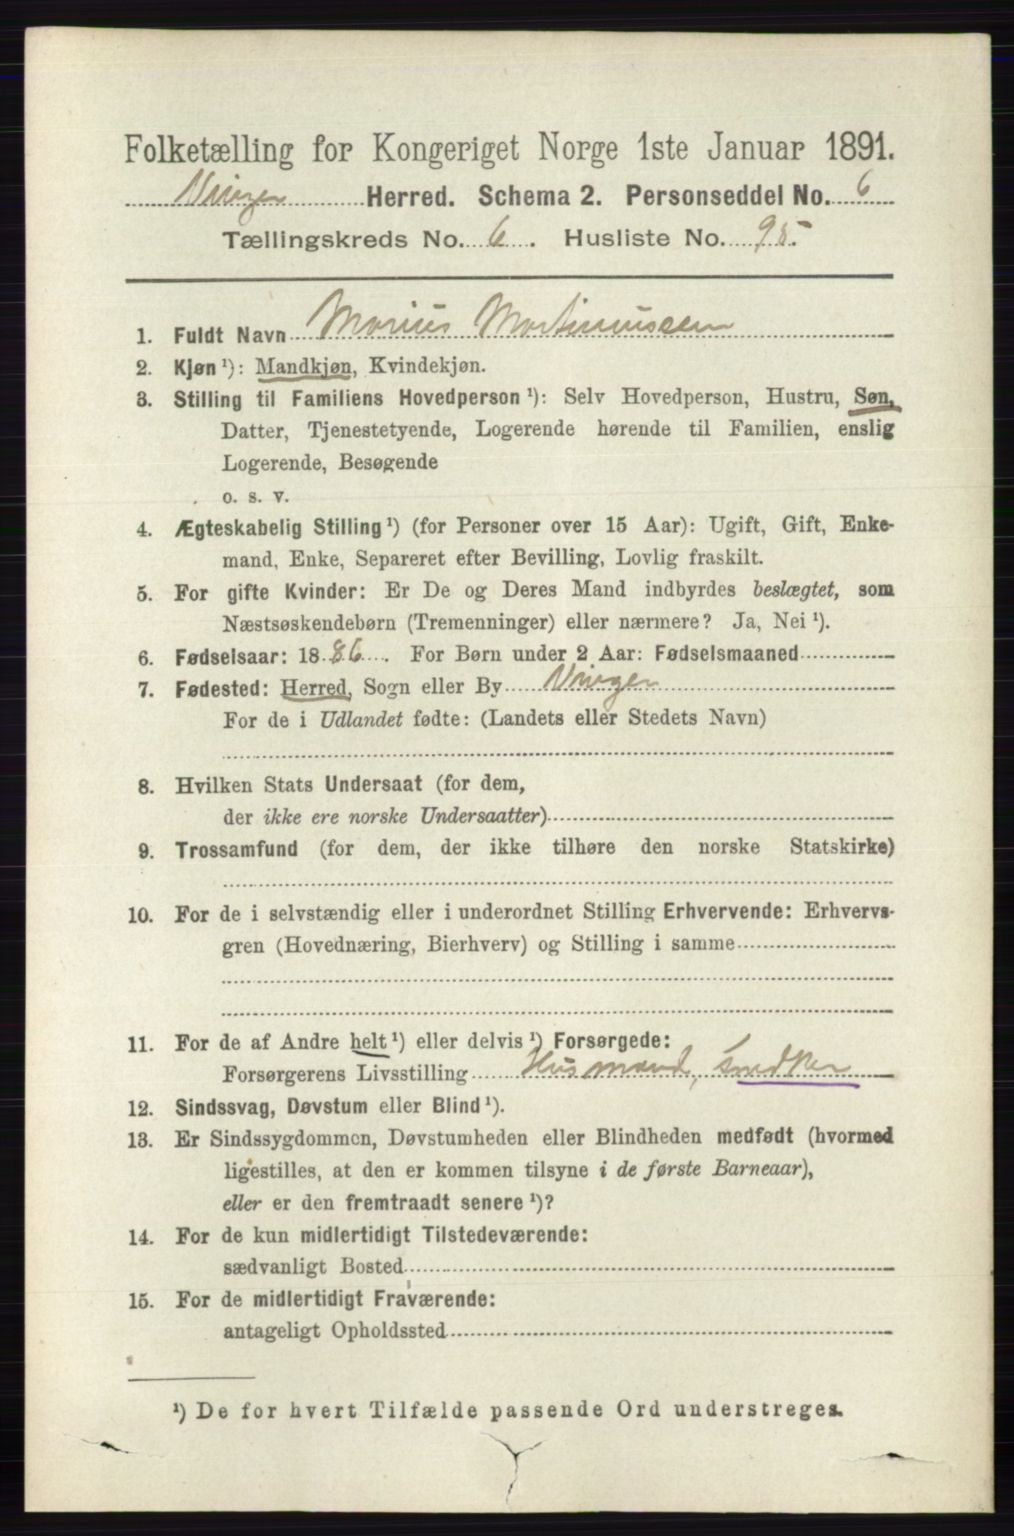 Folketælling for Kongeriget Norge 1ste Januar 1891.
Vinger Herred. Schema 2. Personseddel No. 6
Tællingskreds No. 6. Husliste No. 95.
1. Fuldt Navn Marius Martinussen
2. Kjøn ¹): Mandkjøn, Kvindekjøn.
3. Stilling til Familiens Hovedperson ¹): Selv Hovedperson, Hustru, Søn,
Datter, Tjenestetyende, Logerende hørende til Familien, enslig
Logerende, Besøgende
o. s. v.
4. Ægteskabelig Stilling ¹) (for Personer over 15 Aar): Ugift, Gift, Enke-
mand, Enke, Separeret efter Bevilling, Lovlig fraskilt.
5. For gifte Kvinder: Er De og Deres Mand indbyrdes beslægtet, som
Næstsøskendebørn (Tremenninger) eller nærmere? Ja, Nei ¹).
6. Fødselsaar: 1886. For Børn under 2 Aar: Fødselsmaaned
7. Fødested: Herred, Sogn eller By Vinger
For de i Udlandet fødte: (Landets eller Stedets Navn)
8. Hvilken Stats Undersaat (for dem,
der ikke ere norske Undersaatter)
9. Trossamfund (for dem, der ikke tilhøre den norske Statskirke)
10. For de i selvstændig eller i underordnet Stilling Erhvervende: Erhvervs-
gren (Hovednæring, Bierhverv) og Stilling i samme
11. For de af Andre helt ¹) eller delvis ¹) Forsørgede:
Forsørgerens Livsstilling Husmand, Snedker
12. Sindssvag, Døvstum eller Blind ¹).
13. Er Sindssygdommen, Døvstumheden eller Blindheden medfødt (hvormed
ligestilles, at den er kommen tilsyne i de første Barneaar),
eller er den fremtraadt senere ¹)?
14. For de kun midlertidigt Tilstedeværende:
sædvanligt Bosted
15. For de midlertidigt Fraværende:
antageligt Opholdssted
¹) De for hvert Tilfælde passende Ord understreges.